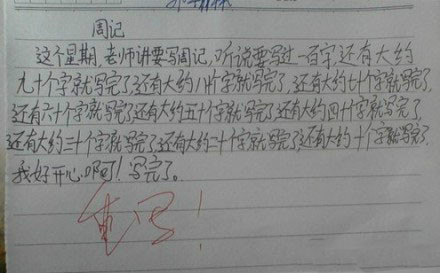 周记
这个星期,老师讲要写周记,听说要写过一百字,还有大约
九十个字就写完了,还有大约八十个字就写完了,还有大约七十个字就写完了,
还有六十个字就写完了还有大约五十个字就写完了,还有大约四十个字就写完了,
还有大约三十个字就写完了,还有大约二十个字就写完了,还有大约十个字就写完了.
我好开心啊!写完了。
重写!